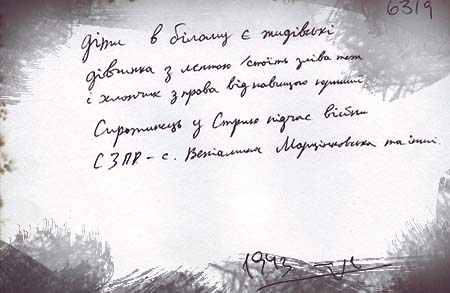 6319
діти в білому є жидівські
дівчинка з лєнтою /стоїть зліва теж
і хлопчик з права від навищого
Сиротинець у Стрию підчас війни
СЗПР – с. Веніямина Марцінковська та інші.
1943